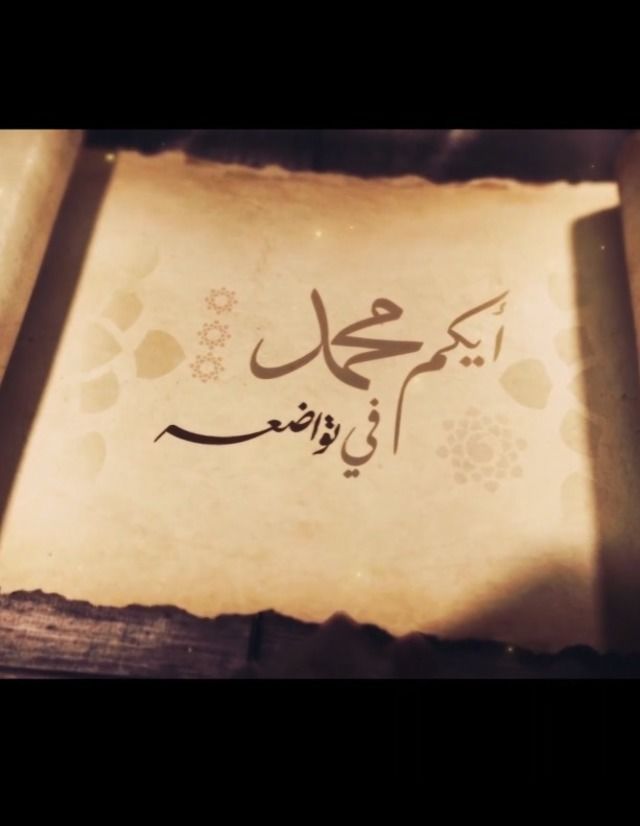 أيكم محمد
في تواضعه